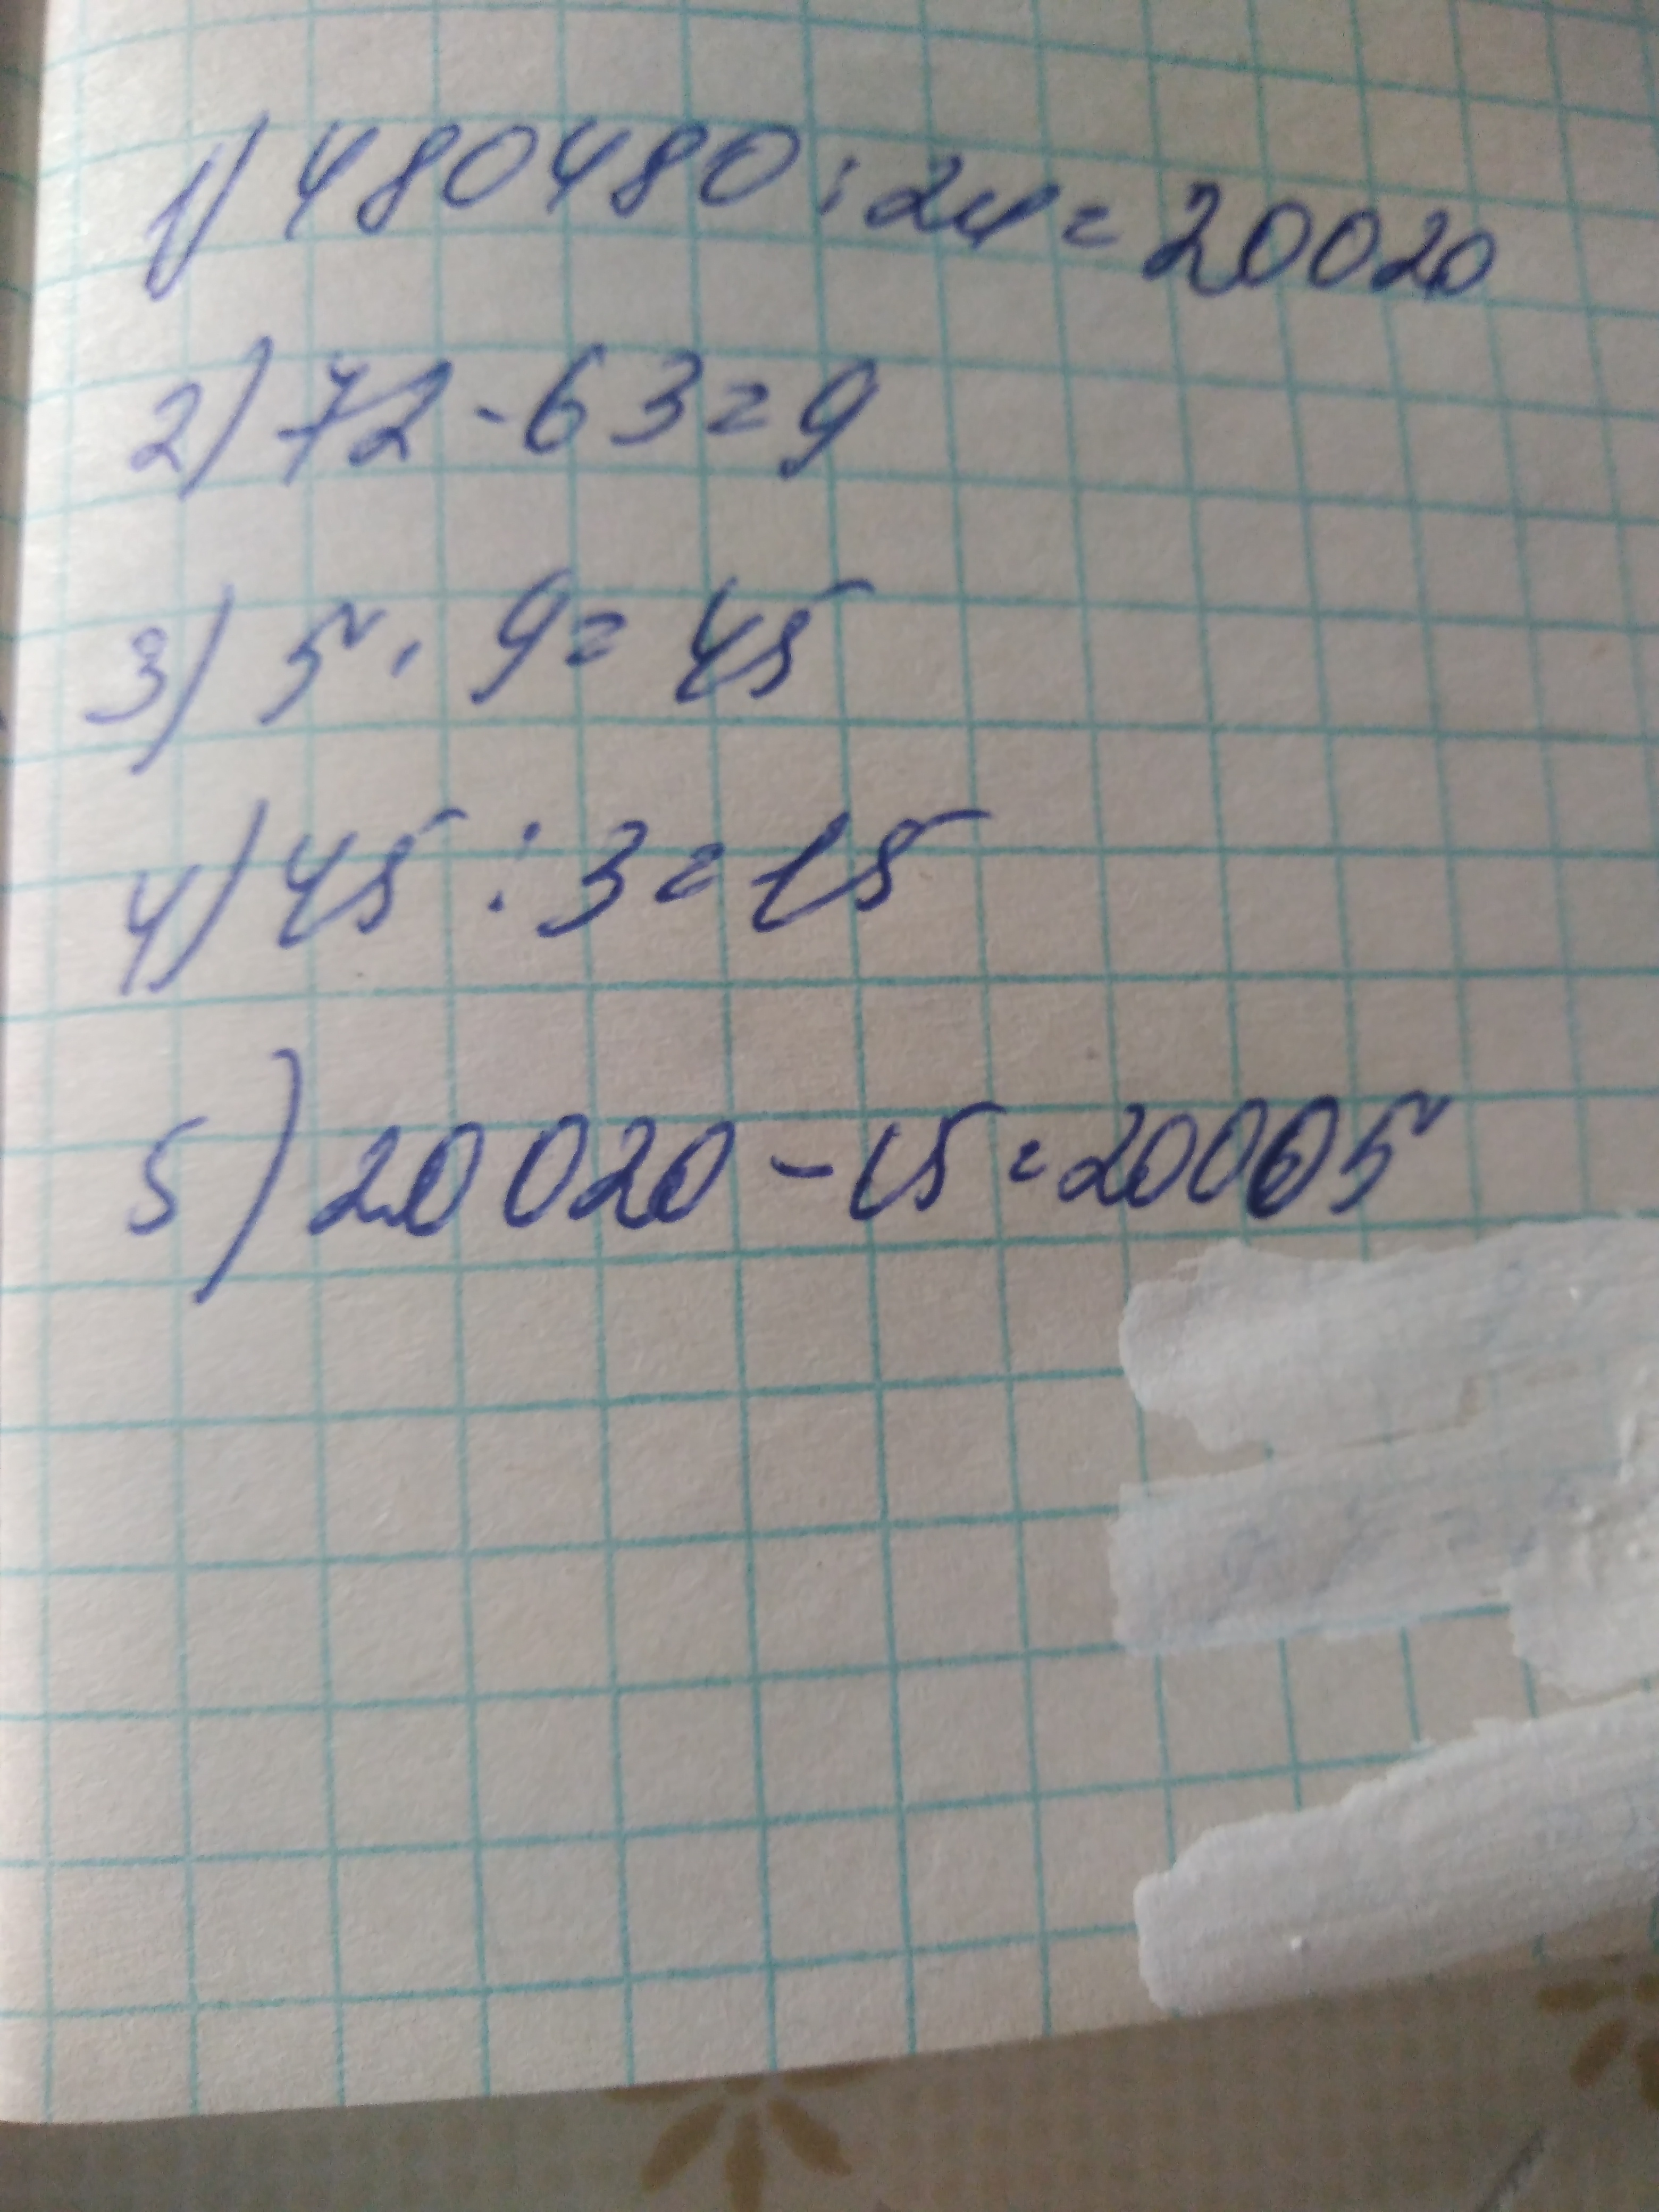 1) 480480 : 24 = 20020
2) 72 - 63 = 9
3) 5 · 9 = 45
4) 45 : 3 = 15
5) 20020 - 15 = 20005